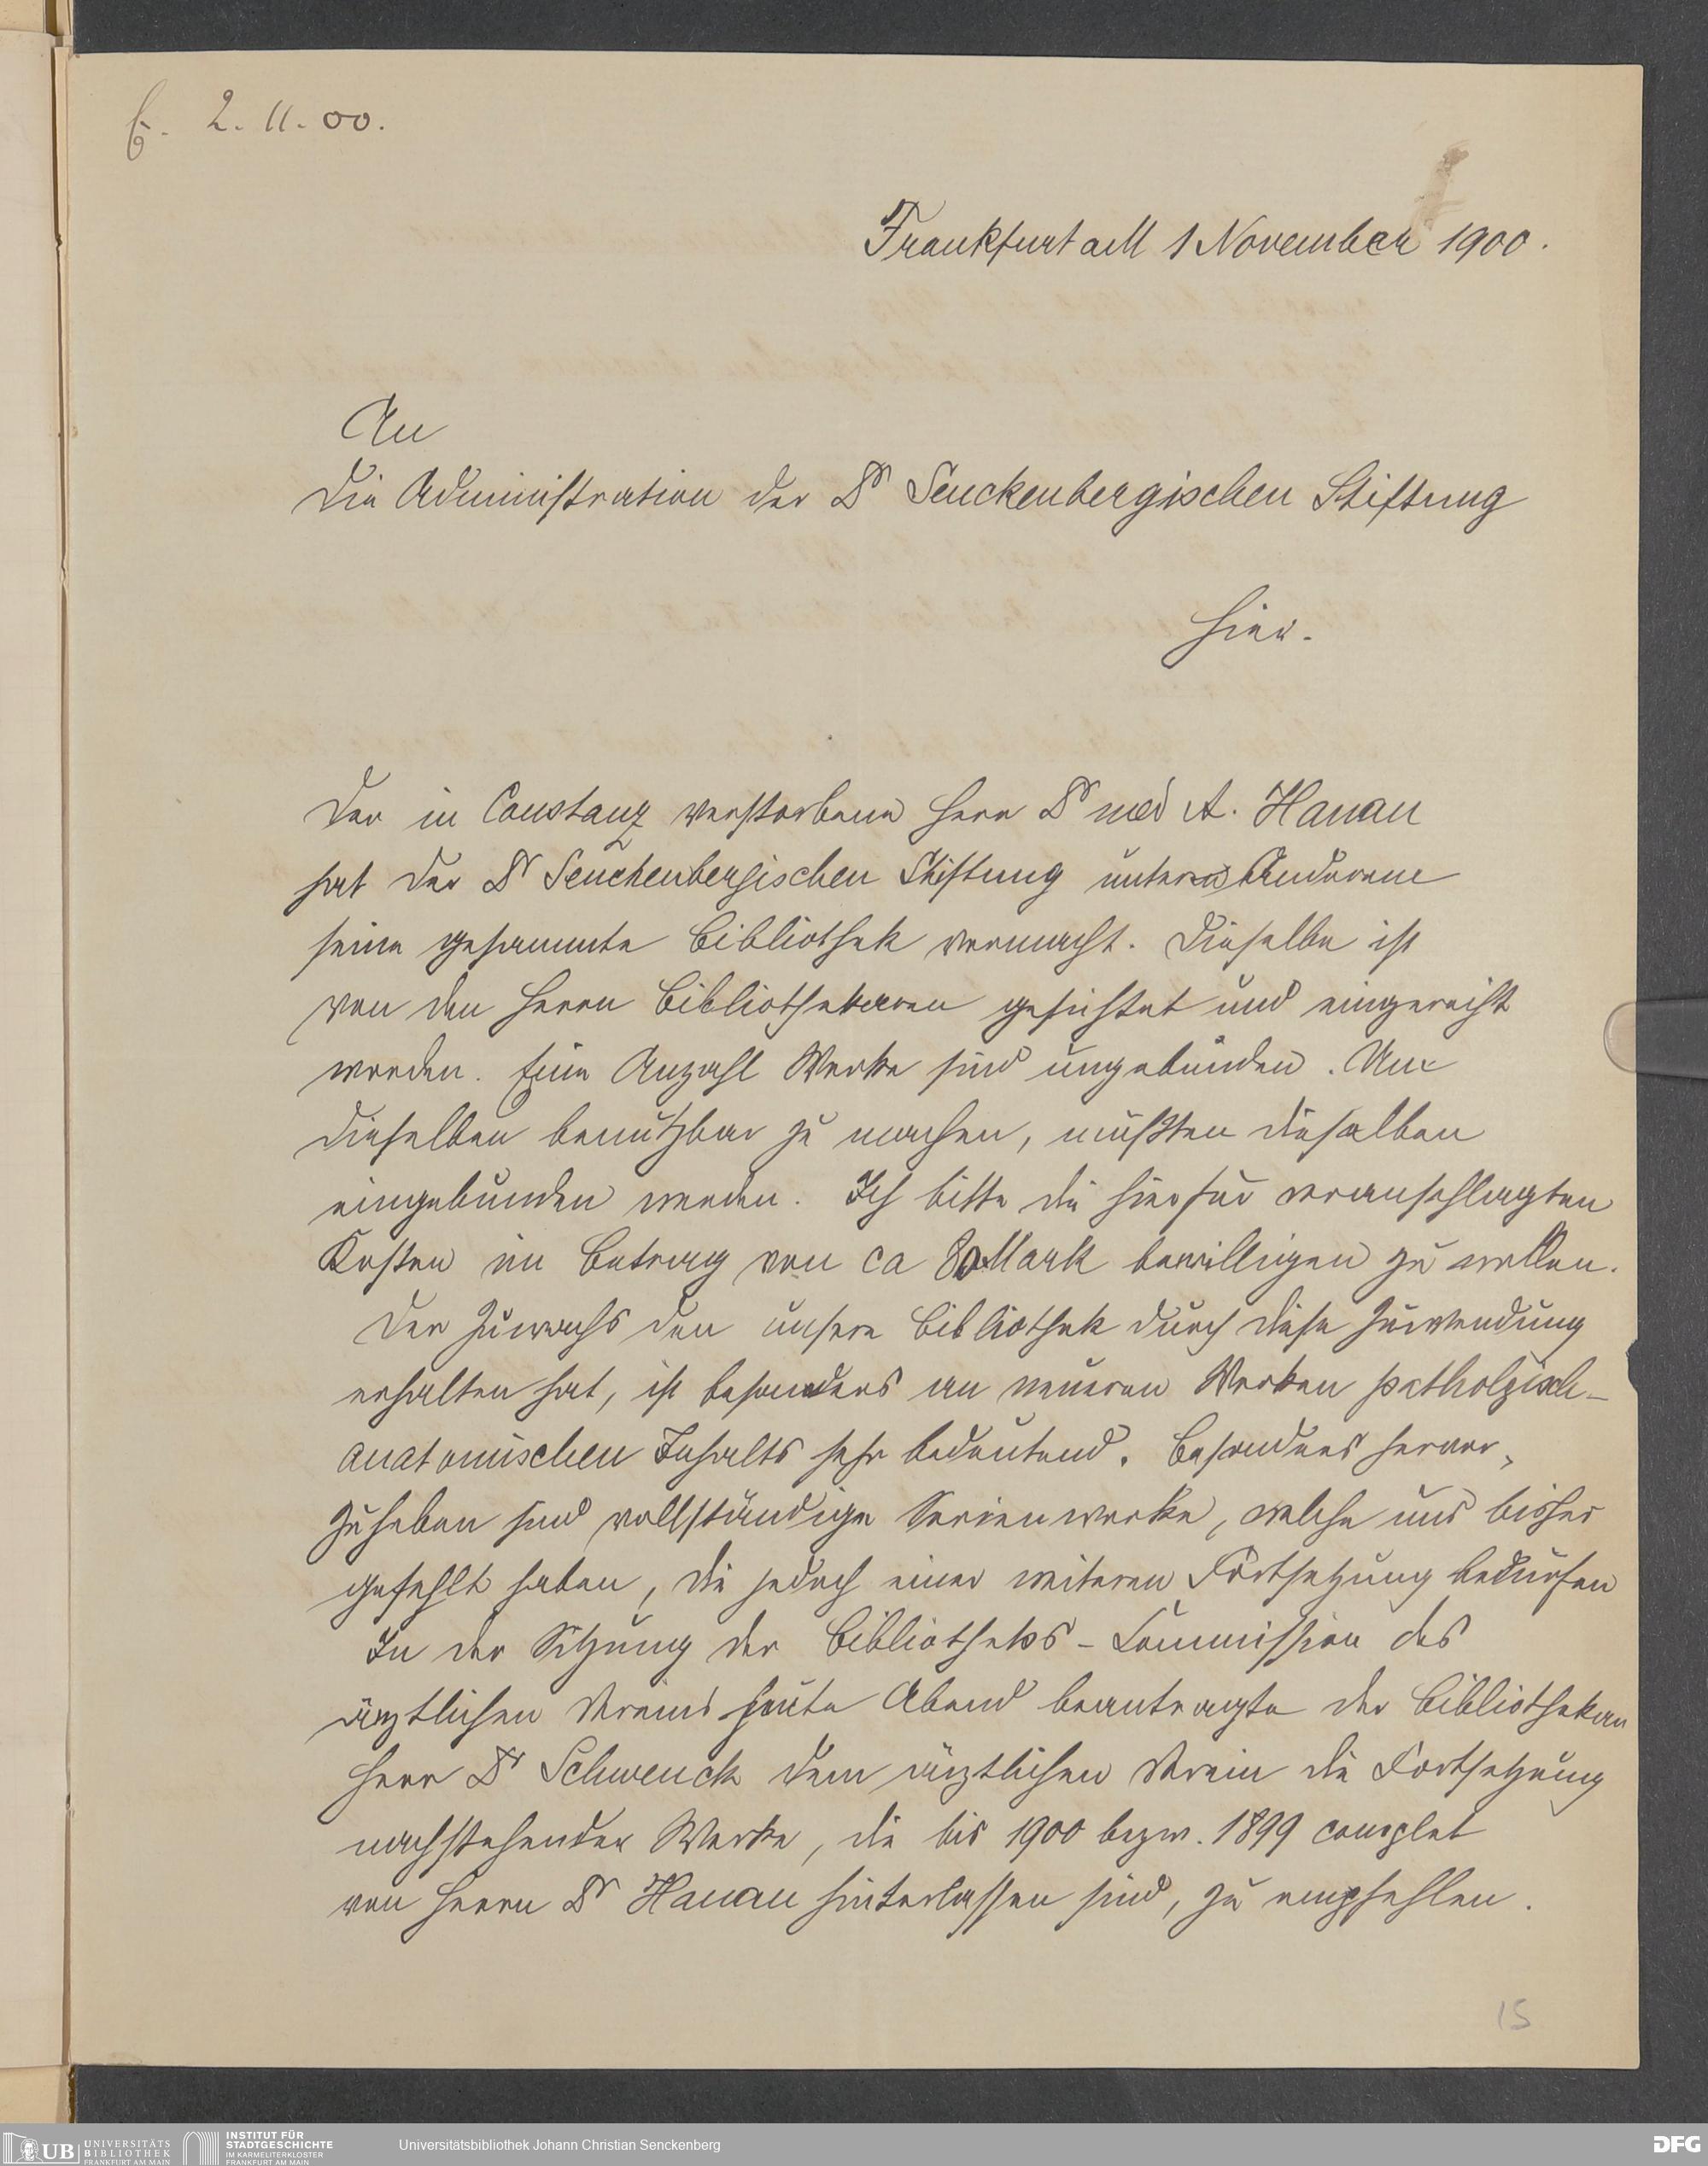 E. 2. 11. 00.
Frankfurt aM 1 November 1900.
An
die Administration der Dr Senckenbergischen Stiftung
hier.
Der in Constanz verstorbene Herr Dr med A. Hanau
hat der Dr Senckenbergischen Stiftung unter Anderem
seine gesammte Bibliothek vermacht. Dieselbe ist
von den Herrn Bibliothekaren gesichtet und eingereiht
worden. Eine Anzahl Werke sind ungebunden. Um
dieselben benutzbar zu machen, müßten dieselben
eingebunden werden. Ich bitte die hierfür veranschlagten
Kosten im Betrag von ca 80 Mark bewilligen zu wollen.
Der Zuwachs den unsere Bibliothek durch diese Zuwendung
erhalten hat, ist besonders an neueren Werken patholgisch-
anatomischen Inhalts sehr bedeutend. Besonders hervor-
zuheben sind vollständige Serienwerke, welche uns bisher
gefehlt haben, die jedoch einer weiteren Fortsetzung bedürfen
In der Sitzung der Bibliotheks-Commission des
ärztlichen Vereins heute Abend beantragte der Bibliothekar
Herr Dr Schwenck dem ärztlichen Verein die Fortsetzung
nachstehender Werke, die bis 1900 bezw. 1899 complet
von Herrn Dr Hanau hinterlassen sind, zu empfehlen.
15
UB UNIVERSITÄTS
BIBLIOTHEK
FRANKFURT AM MAIN
INSTITUT FÜR
STADTGESCHICHTE
IM KARMELITERKLOSTER
FRANKFURT AM MAIN
Universitätsbibliothek Johann Christian Senckenberg
DFG